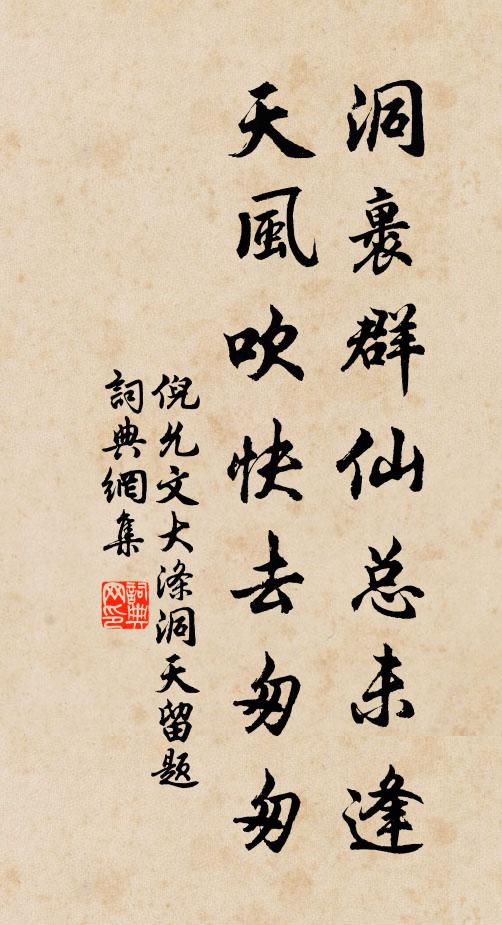 洞裏群仙总未逢
天風吹快去匆匆
倪允文大涤洞天留题
詞典網集
詞典网印